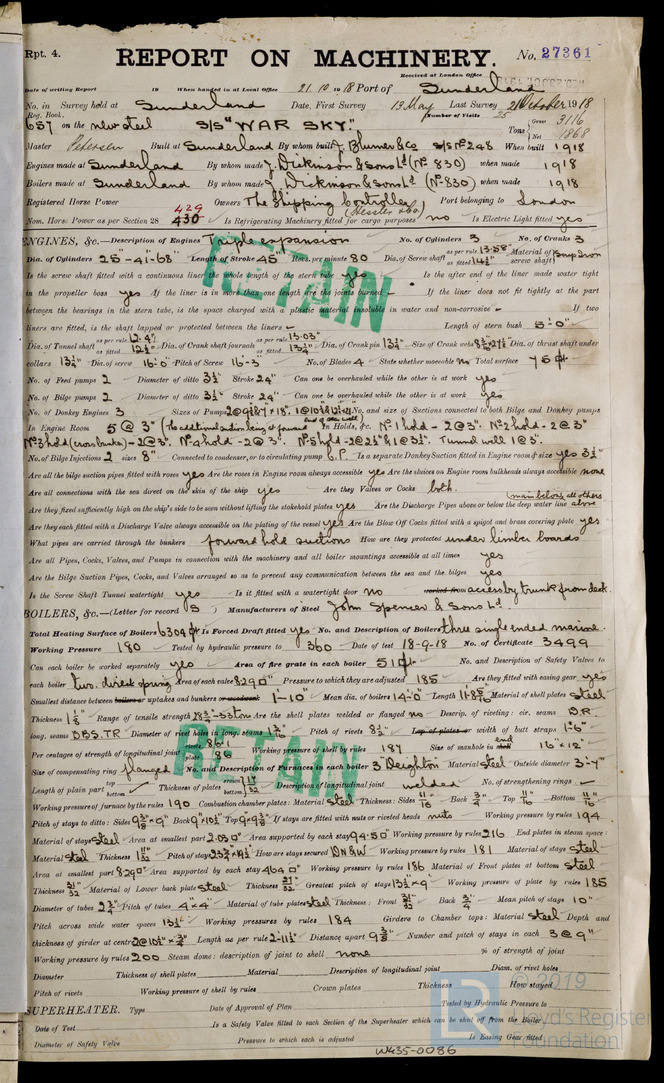 Rpt. 4.
REPORT ON MACHINERY. No. 27361
Received at London Office
Date of writing Report 19 When handed in at Local Office 21.10.1918 Port of Sunderland
No. in Survey held at Sunderland Date, First Survey 13 May Last Survey 21 October 1918
Reg. Book. Number of Visits 25
657 on the new steel S/S "WAR SKY." Tons Gross 3116
Net 1868
Master Petersen Built at Sunderland By whom built J. Blumer & Co S/S No 248 When built 1918
Engines made at Sunderland By whom made J. Dickinson & Sons Ld (No 830) when made 1918
Boilers made at Sunderland By whom made J. Dickinson & Sons Ld (No 830) when made 1918
Registered Horse Power Owners The Shipping Controller Port belonging to London
429
Nom. Horse Power as per Section 28 430 Is Refrigerating Machinery fitted for cargo purposes no Is Electric Light fitted yes
ENGINES, &c.—Description of Engines Triple expansion No. of Cylinders 3 No. of Cranks 3
Dia. of Cylinders 25"-41"-68" Length of Stroke 45" Revs. per minute 80 Dia. of Screw shaft as per rule 13.58" as fitted 14½" Material of screw shaft
Is the screw shaft fitted with a continuous liner the whole length of the stern tube yes Is the after end of the liner made water tight
in the propeller boss yes If the liner is in more than one length are the joints burned - If the liner does not fit tightly at the part
between the bearings in the stern tube, is the space charged with a plastic material insoluble in water and non-corrosive - If two
liners are fitted, is the shaft lapped or protected between the liners - Length of stern bush 5'-0"
Dia. of Tunnel shaft as per rule 12.4" as fitted Dia. of Crank shaft journals as per rule 13.03" as fitted 13¼" Dia. of Crank pin 13¾" Size of Crank webs Dia. of thrust shaft under
collars 13¾" Dia. of screw 16'-0" Pitch of Screw 16'-3" No. of Blades 4 State whether moveable no Total surface 75
No. of Feed pumps 2 Diameter of ditto 3½" Stroke 24" Can one be overhauled while the other is at work yes
No. of Bilge pumps 2 Diameter of ditto 3½" Stroke 24" Can one be overhauled while the other is at work yes
No. of Donkey Engines 3 Sizes of Pumps No. and size of Suctions connected to both Bilge and Donkey pumps
In Engine Room 5 @ 3" In Holds, &c. No 1 hold - 2 @ 3". No 2 hold - 2 @ 3"
No 3 hold (cross bunker) - 2 @ 3". No 4 hold - 2 @ 3". No 5 hold - 2 @ 2½" & 1 @ 3½". Tunnel well 1 @ 3".
No. of Bilge Injections 2 sizes 8" Connected to condenser, or to circulating pump C.P. Is a separate Donkey Suction fitted in Engine room & size yes 3½"
Are all the bilge suction pipes fitted with roses yes Are the roses in Engine room always accessible yes Are the sluices on Engine room bulkheads always accessible none
Are all connections with the sea direct on the skin of the ship yes Are they Valves or Cocks both.
Are they fixed sufficiently high on the ship's side to be seen without lifting the stokehold plates yes Are the Discharge Pipes above or below the deep water line (main below, all others above
Are they each fitted with a Discharge Valve always accessible on the plating of the vessel yes Are the Blow Off Cocks fitted with a spigot and brass covering plate yes
What pipes are carried through the bunkers forward hold suctions How are they protected under limber boards
Are all Pipes, Cocks, Valves, and Pumps in connection with the machinery and all boiler mountings accessible at all times yes
Are the Bilge Suction Pipes, Cocks, and Valves arranged so as to prevent any communication between the sea and the bilges yes
Is the Screw Shaft Tunnel watertight yes Is it fitted with a watertight door no worked from access by trunk from deck.
BOILERS, &c.—(Letter for record S ) Manufacturers of Steel John Spencer & Sons Ld
Total Heating Surface of Boilers 6309 Is Forced Draft fitted yes No. and Description of Boilers three single ended marine.
Working Pressure 180 Tested by hydraulic pressure to 360 Date of test 18-9-18 No. of Certificate 3499
Can each boiler be worked separately yes Area of fire grate in each boiler 51 No. and Description of Safety Valves to
each boiler two direct spring Area of each valve 8.290" Pressure to which they are adjusted 185 Are they fitted with easing gear yes
Smallest distance between boilers or uptakes and bunkers or woodwork 1'-10" Mean dia. of boilers 14'-0" Length Material of shell plates steel
Thickness Range of tensile strength 28¾-33 tons Are the shell plates welded or flanged no Descrip. of riveting: cir. seams D.R.
long. seams D.B.S.TR Diameter of rivet holes in long. seams Pitch of rivets 8½" Lap of plates or width of butt straps 1'-6"
Per centages of strength of longitudinal joint rivets 86.1 plate 86 Working pressure of shell by rules 187 Size of manhole in shell end 16"x12"
Size of compensating ring flanged No. and Description of Furnaces in each boiler 3 Deighton Material steel Outside diameter 3'-7"
Length of plain part top bottom Thickness of plates crown bottom Description of longitudinal joint welded No. of strengthening rings -
Working pressure of furnace by the rules 190 Combustion chamber plates: Material steel Thickness: Sides 11/16" Back ¾" Top 11/16" Bottom 11/16"
Pitch of stays to ditto: Sides Back Top If stays are fitted with nuts or riveted heads nuts Working pressure by rules 194
Material of stays steel Area at smallest part 2.030" Area supported by each stay 94.50" Working pressure by rules 216 End plates in steam space:
Material steel Thickness Pitch of stays How are stays secured D.N&W Working pressure by rules 181 Material of stays steel
Area at smallest part 8.290" Area supported by each stay 464 Working pressure by rules 186 Material of Front plates at bottom steel
Thickness 31/32" Material of Lower back plate steel Thickness 27/32" Greatest pitch of stays 13½"x9" Working pressure of plate by rules 185
Diameter of tubes 2¾" Pitch of tubes 4"x4" Material of tube plates steel Thickness: Front 31/32" Back ¾" Mean pitch of stays 10"
Pitch across wide water spaces 13½" Working pressures by rules 184 Girders to Chamber tops: Material steel Depth and
thickness of girder at centre Length as per rule 2'-11½" Distance apart 9⅜" Number and pitch of stays in each 3 @ 9"
Working pressure by rules 200 Steam dome: description of joint to shell none % of strength of joint
Diameter Thickness of shell plates Material Description of longitudinal joint Diam. of rivet holes
Pitch of rivets Working pressure of shell by rules Crown plates Thickness How stayed
SUPERHEATER. Type Date of Approval of Plan Tested by Hydraulic Pressure to
Date of Test Is a Safety Valve fitted to each Section of the Superheater which can be shut off from the Boiler
Diameter of Safety Valve Pressure to which each is adjusted Is Easing Gear fitted
W435-0086
RETAIN
RETAIN
© 2019
Lloyd's Register
Foundation